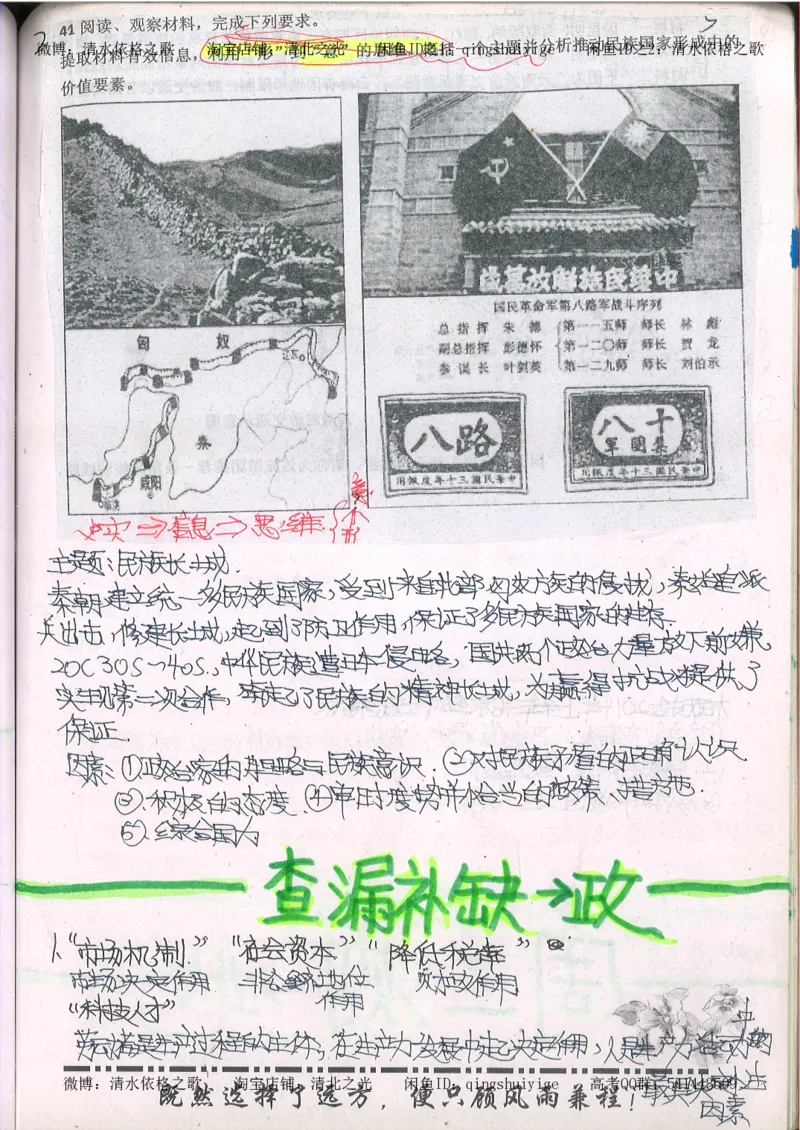 41 阅读、观察材料，完成下列要求。
微博：清水依格之歌 淘宝店铺：清北之光 闲鱼ID：qingshuiyige 闲鱼ID之2：清水依格之歌
提取材料有效信息，利用“形”到“意”的思维 概括一个主题并分析推动民族国家形成中的
价值要素。
匈 奴
辽东
秦
咸阳
临洮
中华民族解放基线
国民革命军第八路军战斗序列
总指挥 朱德 第一一五师 师长 林彪
副总指挥 彭德怀 第一二〇师 师长 贺龙
参谋长 叶剑英 第一二九师 师长 刘伯承
八路
中华民国三十年度佩用
十八
集团军
中华民国三十年度佩用
史实→信息→思维
主题：民族长城．
秦朝建立统一多民族国家，受到来自北部匈奴族的侵扰，秦始皇派
兵出击，修建长城，起到了防卫作用，保证了多民族国家的生存．
20C 30S~40S，中华民族遭日本侵略，国共两个政治力量放下前嫌
实现第二次合作，铸起了民族的精神长城，为赢得抗战提供了
保证．
因素：①政治家的胆略与民族意识．②对民族矛盾的正确认识
③积极的态度．④审时度势 恰当的政策、措施．
⑤综合国力
查漏补缺→政
1、“市场机制” “社会资本” “降低税率”
市场决定作用 非公经济地位作用 财政作用
“科技人才”
劳动者是生产过程的主体，在生产力发展中起决定作用，人是生产力 中的
最具
因素
微博：清水依格之歌 淘宝店铺：清北之光 闲鱼ID：qingshuiyige 高考QQ群：
既然选择了远方，便只顾风雨兼程！